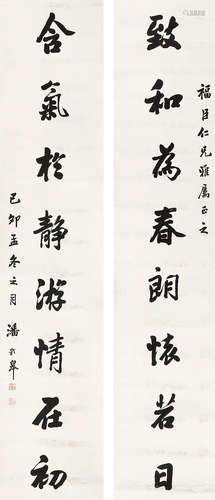 福臣仁兄雅属正之
致和為春朗懷若日
含氣於靜游情在初
己卯孟冬之月 潘齡皋